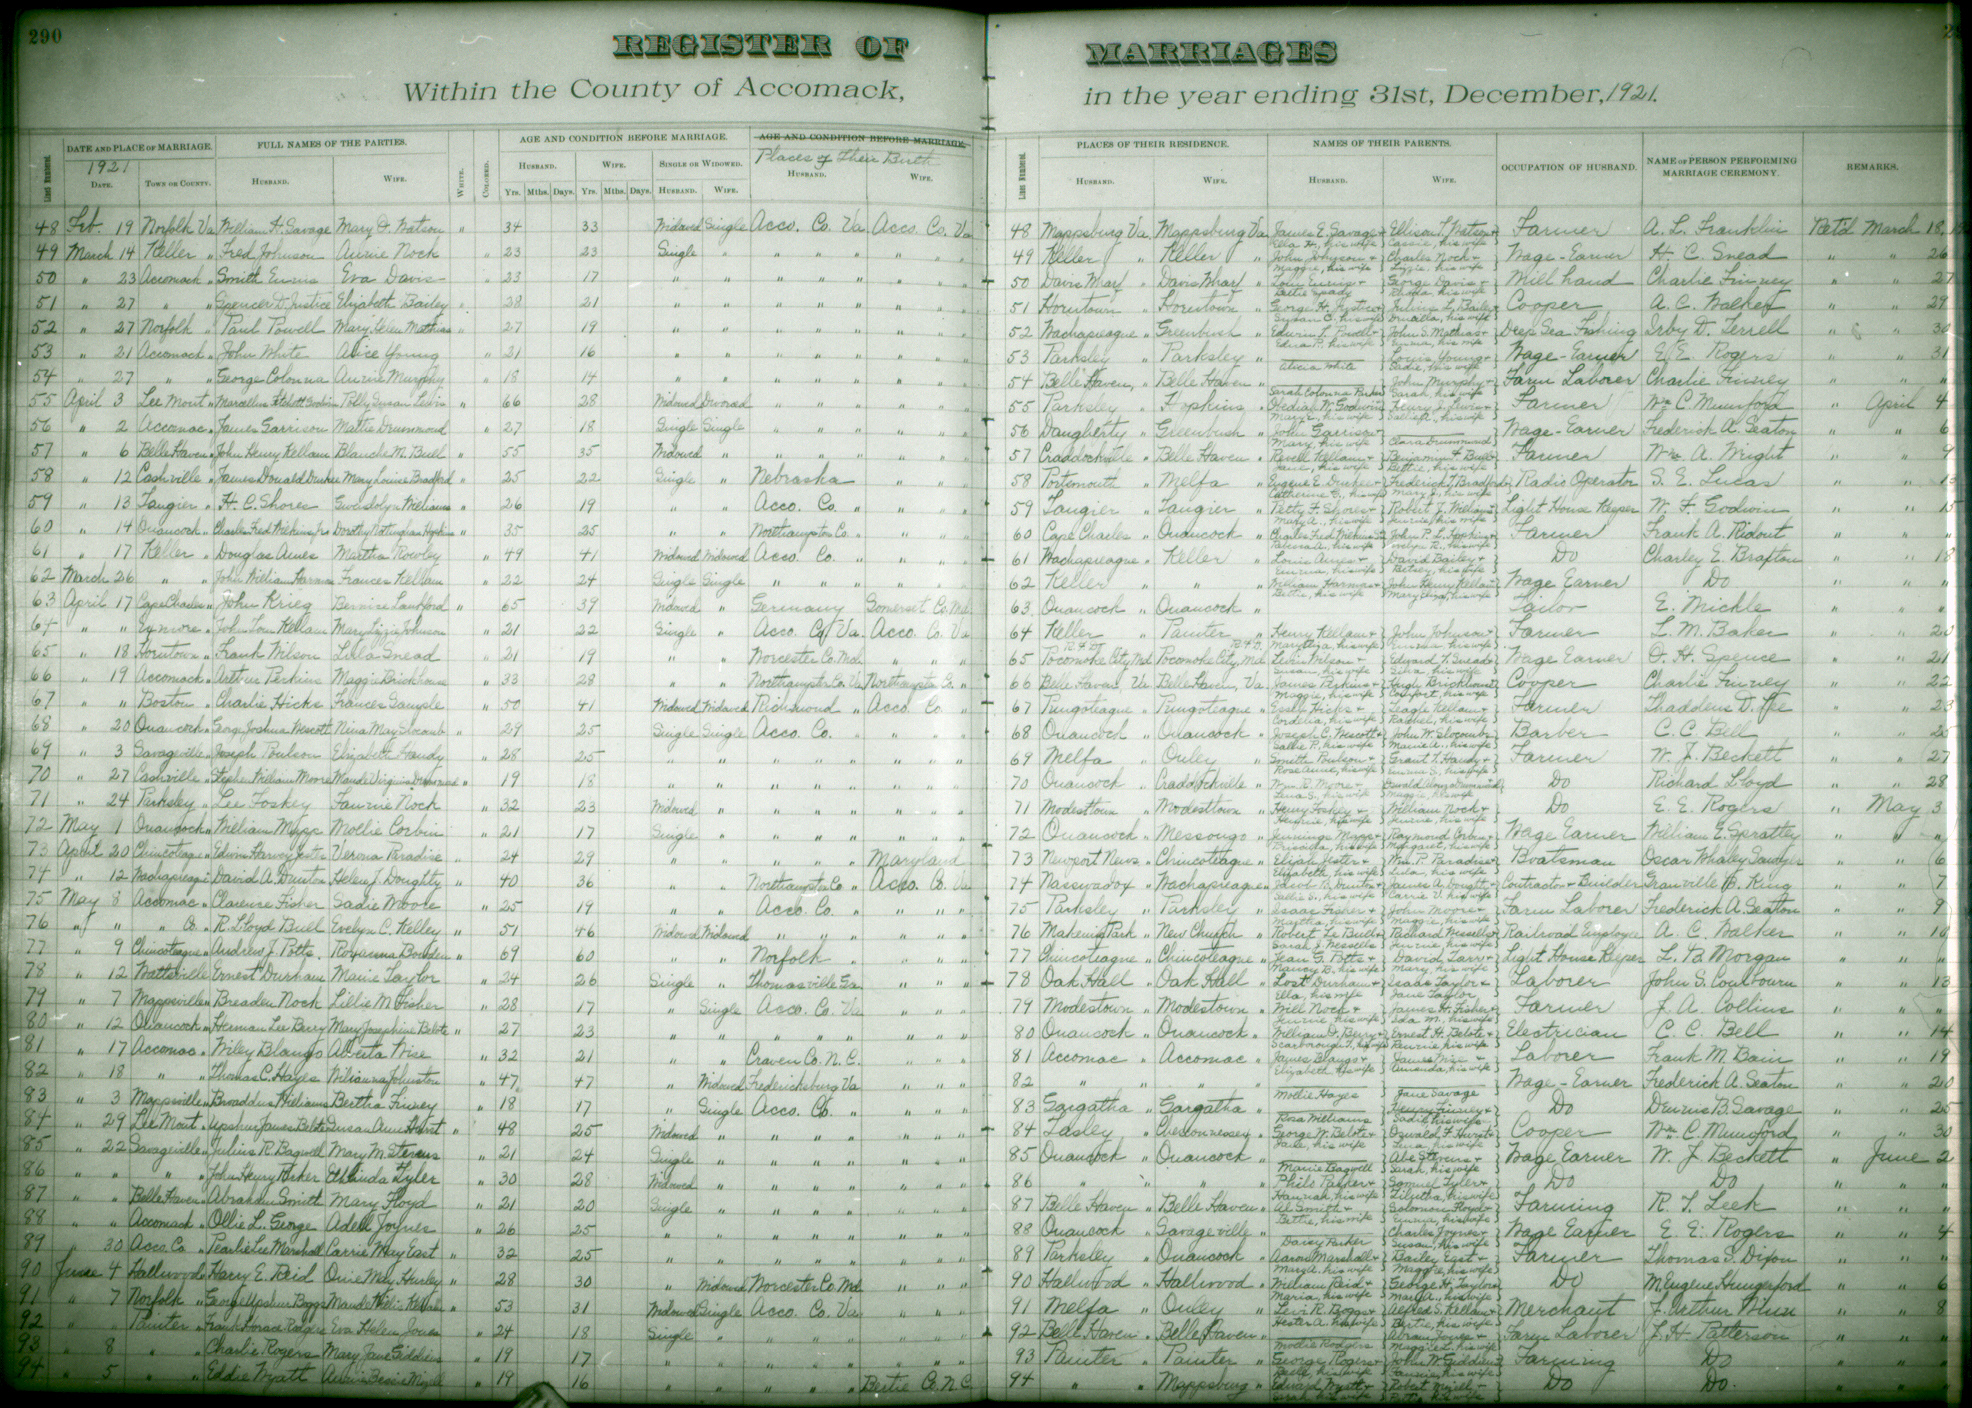 290
REGISTER OF MARRIAGES
Within the County of Accomack, in the year ending 31st, December, 1921.
LINE NUMBER. DATE AND PLACE OF MARRIAGE. FULL NAMES OF THE PARTIES. WHITE. COLORED. AGE AND CONDITION BEFORE MARRIAGE. AGE AND CONDITION BEFORE MARRIAGE. Places of Their Birth
1921 DATE. TOWN OR COUNTY. HUSBAND. WIFE. HUSBAND. WIFE. SINGLE OR WIDOWED. HUSBAND. WIFE.
Yrs. Mths. Days. Yrs. Mths. Days. HUSBAND. WIFE.
48 Feb. 19 Norfolk Va William H. Savage Mary O. Watson " 34 33 Widowed Single Acco. Co. Va. Acco. Co. Va
49 March 14 Keller " Fred Johnson Annie Nock " 23 23 Single " " " " " " "
50 " 23 Accomack " Smith Ennis Eva Davis " 23 17 " " " " " " " "
51 " 27 " " Spencer D. Justice Elizabeth Bailey " 28 21 " " " " " " " "
52 " 27 Norfolk " Paul Powell Mary Helen Mathias " 27 19 " " " " " " " "
53 " 21 Accomack " John White Alice Young " 21 16 " " " " " " " "
54 " 27 " " George Colonna Annie Murphy " 18 14 " " " " " " " "
55 April 3 Lee Mont " Marcellus Godwin Polly Susan Lewis " 66 28 Widowed Divorced " " " " " "
56 " 2 Accomac " James Garrison Mattie Drummond " 27 18 Single Single " " " " " "
57 " 6 Belle Haven " John Henry Kellam Blanche M. Bull " 55 35 Widowed " " " " " " "
58 " 12 Cashville " James Donald Dunkee Mary Louise Bradford " 25 22 Single " Nebraska " " "
59 " 13 Tangier " H. C. Shores Gwendolyn Williams " 26 19 " " Acco. Co. " " " "
60 " 14 Onancock " Charles Fred Wilkins Jr. Dorothy Nottingham Hopkins " 35 25 " " Northampton Co. " " " "
61 " 17 Keller " Douglas Ames Martha Rowley " 49 41 Widowed Widowed Acco. Co. " " " "
62 March 26 " " John William Harmon Frances Kellam " 22 24 Single Single " " " " " "
63 April 17 Cape Charles " John Krieg Bernice Lankford " 65 39 Widowed " Germany Somerset Co. Md.
64 " " Exmore " John Tom Kellam Mary Lizzie Johnson " 21 22 Single " Acco. Co. Va. Acco. Co. Va
65 " 18 Horntown " Frank Wilson Lula Snead " 21 19 " " Worcester Co. Md. " " "
66 " 19 Accomack " Arthur Perkins Maggie Brickhouse " 33 28 " " Northampton Co. Va Northampton Co. "
67 " " Boston " Charlie Hicks Frances Sample " 50 41 Widowed Widowed Richmond " Acco. Co. "
68 " 20 Onancock " George Joshua Nescott Nina May Slocomb " 29 25 Single Single Acco. Co. " " " "
69 " 3 Savageville " Joseph Poulson Elizabeth Handy " 28 25 " " " " " " " "
70 " 27 Cashville " Stephen William Moore Maude Virginia Drummond " 19 18 " " " " " " " "
71 " 24 Parksley " Lee Foskey Fannie Nock " 32 23 Widowed " " " " " " "
72 May 1 Onancock " William Mapp Mollie Corbin " 21 17 Single " " " " " " "
73 April 20 Chincoteague " Edwin Harvey Jester Verona Paradise " 24 29 " " " " " Maryland
74 " 12 Wachapreague " David A. Dunton Helen J. Doughty " 40 36 " " Northampton Co. " Acco. Co. Va
75 May 8 Accomac " Clarence Fisher Sadie Moore " 25 19 " " Acco. Co. " " " "
76 " " " Co. " R. Lloyd Bull Evelyn C. Kelley " 51 46 Widowed Widowed " " " " " "
77 " 9 Chincoteague " Andrew J. Potts. Royanna Bowden " 69 60 " " Norfolk " " " "
78 " 12 Wattsville Ernest Durham Marie Taylor " 24 26 Single " Thomasville Ga. " " "
79 " 7 Mappsville " Breaden Nock Lillie M. Fisher " 28 17 " Single Acco. Co. Va " " "
80 " 12 Onancock " Herman Lee Berry Mary Josephine Belote " 27 23 " " " " " " " "
81 " 17 Accomac " Wiley Blango Alberta Wise " 32 21 " " Craven Co. N. C. " " "
82 " 18 " " Thomas C. Hayes Wilianna Johnston " 47 47 " Widowed Fredericksburg Va " " "
83 " 3 Mappsville " Broaddus Williams Bertha Finney " 18 17 " Single Acco. Co. " " " "
84 " 29 Lee Mont " Upshur James Belote Susan Ann Hurst " 48 25 Widowed " " " " " " "
85 " 22 Savageville " Julius R. Bagwell Mary M. Stevens " 21 24 Single " " " " " " "
86 " " " " John Henry Parker Tyler " 30 28 Widowed " " " " " " "
87 " " Belle Haven " Abraham Smith Mary Floyd " 21 20 Single " " " " " " "
88 " " Accomack " Ollie L. George Adell Joynes " 26 25 " " " " " " " "
89 " 30 Acco. Co. " Pearlie Lee Marshall Carrie May East " 32 25 " " " " " " " "
90 June 4 Hallwood " Harry E. Reid Onie May Hurley " 28 30 " Widowed Worcester Co. Md. " " "
91 " 7 Norfolk " George Upshur Boggs Maude Kellam " 53 31 Widowed Single Acco. Co. Va. " " "
92 " " Painter " Frank Horace Rodgers Eva Helen Jones " 24 18 Single " " " " " " "
93 " 8 " " Charlie Rogers Mary Jane Giddins " 19 17 " " " " " " " "
94 " 5 " " Eddie Wyatt Annie Bessie " 19 16 " " " " " Bertie Co. N. C.
LINE NUMBER. PLACES OF THEIR RESIDENCE. NAMES OF THEIR PARENTS. OCCUPATION OF HUSBAND. NAME OF PERSON PERFORMING MARRIAGE CEREMONY. REMARKS.
HUSBAND. WIFE. HUSBAND. WIFE.
48 Mappsburg Va. Mappsburg Va. James E. Savage + Ella H., his wife Ellison T. Watson + Cassie, his wife Farmer A. L. Franklin Ret'd March 18,
49 Keller " Keller " John Johnson + Maggie, his wife Charles Nock + Lizzie, his wife Wage-Earner H. C. Snead " " 26
50 Davis Wharf " Davis Wharf " George Davis + Mill hand Charlie Finney " " 27
51 Horntown " Horntown " George H. Justice + Susan C., his wife Julius L. Bailey + his wife Cooper A. C. Walker " " 29
52 Wachapreague " Greenbush " Edwin L. Powell + Edna P., his wife John S. Mathias + Emma, his wife Deep Sea Fishing Irby D. Terrell " " 30
53 Parksley " Parksley " Alicia White Louis Young + Sadie, his wife Wage-Earner E. E. Rogers " " 31
54 Belle Haven, " Belle Haven " Sarah Colonna Parker John Murphy + Sarah, his wife Farm Laborer Charlie Finney " " "
55 Parksley " Hopkins " W. Godwin + Mary, his wife Henry J. Lewis + his wife Farmer Wm. C. Mumford " April 4
56 Daugherty " Greenbush " John Garrison + Mary, his wife Clara Drummond Wage-Earner Frederick A. Seaton " " 6
57 Craddockville " Belle Haven " Revell Kellam + Janie, his wife Benjamin F. Bull + Bettie, his wife Farmer Wm. A. Wright " " 9
58 Portsmouth " Melfa " Eugene E. Dunkee + Catherine E., his wife Frederick T. Bradford + Mary J., his wife Radio Operator S. E. Lucas " " 13
59 Tangier " Tangier " Petty F. Shores + Mary A., his wife Robert T. Williams + Jennie, his wife Light House Keeper W. F. Godwin " " 15
60 Cape Charles " Onancock " Charles Fred Wilkins Sr. + his wife John P. L. Hopkins + Evelyn R., his wife Farmer Frank A. Ridout " " "
61 Wachapreague " Keller " Louis Ames + Emma, his wife David Bailey + Betsey, his wife Do Charley E. Brafton " " 18
62 Keller " " " William Harmon + Bettie, his wife John Henry Kellam + Mary Eliza, his wife Wage Earner Do " " "
63. Onancock " Onancock " Tailor E. Mickle " " "
64 Keller " Painter " Henry Kellam + Mary Liza, his wife John Johnson + Emma, his wife Farmer L. M. Baker " " 20
65 Pocomoke City, Md. Pocomoke City, Md. Levin Wilson + Susan, his wife Edward T. Snead + his wife Wage Earner O. H. Spence " " 21
66 Belle Haven, Va Belle Haven, Va. James Perkins + Maggie, his wife Hugh Brickhouse + Comfort, his wife Cooper Charlie Finney " " 22
67 Pungoteague " Pungoteague " Essex Hicks + Cordelia, his wife Teagle Kellam + Rachel, his wife Farmer Thaddeus D. Lee " " 23
68 Onancock " Onancock " Joseph C. Nescott + Sallie P., his wife John W. Slocomb + Mamie A., his wife Barber C. C. Bell " " 25
69 Melfa " Onley " Smith Poulson + Rose Anne, his wife Grant T. Handy + Emma S., his wife Farmer W. J. Beckett " " 27
70 Onancock " Craddockville " Wm. R. Moore + Lena S., his wife Oswald Drummond + Maggie, his wife Do Richard Lloyd " " 28
71 Modesttown " Modesttown " Henry Foskey + Hennie, his wife William Nock + Jennie, his wife Do E. E. Rogers " May 3
72 Onancock " Messongo " Jennings Mapp + Priscilla, his wife Raymond Corbin + Margaret, his wife Wage Earner William E. Spratley " " "
73 Newport News " Chincoteague " Elijah Jester + Elizabeth, his wife Wm. P. Paradise + Lula, his wife Boatsman Oscar Whaley Sawyer " " 6
74 Nasswadox " Wachapreague " Jacob B. Dunton + Sallie S., his wife James A. Doughty + Carrie V. his wife Contractor + Builder Granville B. King " " 7
75 Parksley " Parksley " Isaac Fisher + Martha, his wife John Moore + Maggie, his wife Farm Laborer Frederick A. Seaton " " 9
76 Makemie Park " New Church " Robert Le Bull + Sarah J. Nessells Richard Nessells + Jennie, his wife Railroad Employee A. C. Walker " " 10
77 Chincoteague " Chincoteague " Jean G. Potts + Nancy B., his wife David Tarr + Mary, his wife Light House Keeper L. B. Morgan " " "
78 Oak Hall " Oak Hall " Lost Durham + Ella, his wife Isaac Taylor + Jane Taylor Laborer John S. Coulbourn " " 13
79 Modestown " Modestown " Will Nock + Jennie, his wife James H. Fisher + Ida M., his wife Farmer J. A. Collins " " "
80 Onancock " Onancock " William D. Berry + Scarborough T., his wife Ernest H. Belote + Rennie, his wife Electrician C. C. Bell " " 14
81 Accomac " Accomac " James Blango + Elizabeth his wife James Wise + Amanda, his wife Laborer Frank M. Bain " " 19
82 " " " " Mollie Hayes Jane Savage Wage-Earner Frederick A. Seaton " " 20
83 Gargatha " Gargatha " Rosa Williams Henry Finney + Sadie, his wife Do Dennis B. Savage " " 25
84 Tasley " Chesconnessex " George W. Belote + Jane, his wife Oswald F. Hurst + Lena, his wife Cooper Wm. C. Mumford " " 30
85 Onancock " Onancock " Mamie Bagwell Abe Stevens + Sarah, his wife Wage Earner W. J. Beckett " June 2
86 " " " " Philo Parker + Hannah, his wife Samuel Tyler + Lilytha, his wife Do Do " " "
87 Belle Haven " Belle Haven " Al Smith + Bettie, his wife Solomon Floyd + Emma, his wife Farming R. T. Leek " " "
88 Onancock " Savageville " Daisy Parker Charles Joynes + Susan, his wife Wage Earner E. E. Rogers " " 4
89 Parksley " Onancock " Aaron Marshall + Marg A., his wife Bailey East + Maggie, his wife Farmer Thomas S. Dixon " " "
90 Hallwood " Hallwood " William Reid + Maria, his wife George H. Taylor + Mary A., his wife Do M. Eugene Hungerford " " 6
91 Melfa " Onley " Levi R. Boggs + Hester A. his wife Alfred S. Kellam + Bertie, his wife Merchant J. Arthur Winn " " 8
92 Belle Haven " Belle Haven " Mollie Rodgers Abram Jones + Maggie L. his wife Farm Laborer J. H. Patterson " " "
93 Painter " Painter " George Rogers + his wife John W. Giddins + Fannie, his wife Farming Do " " "
94 " " Mappsburg " Edward Wyatt + Sarah, his wife Robert + his wife Do Do. " " "